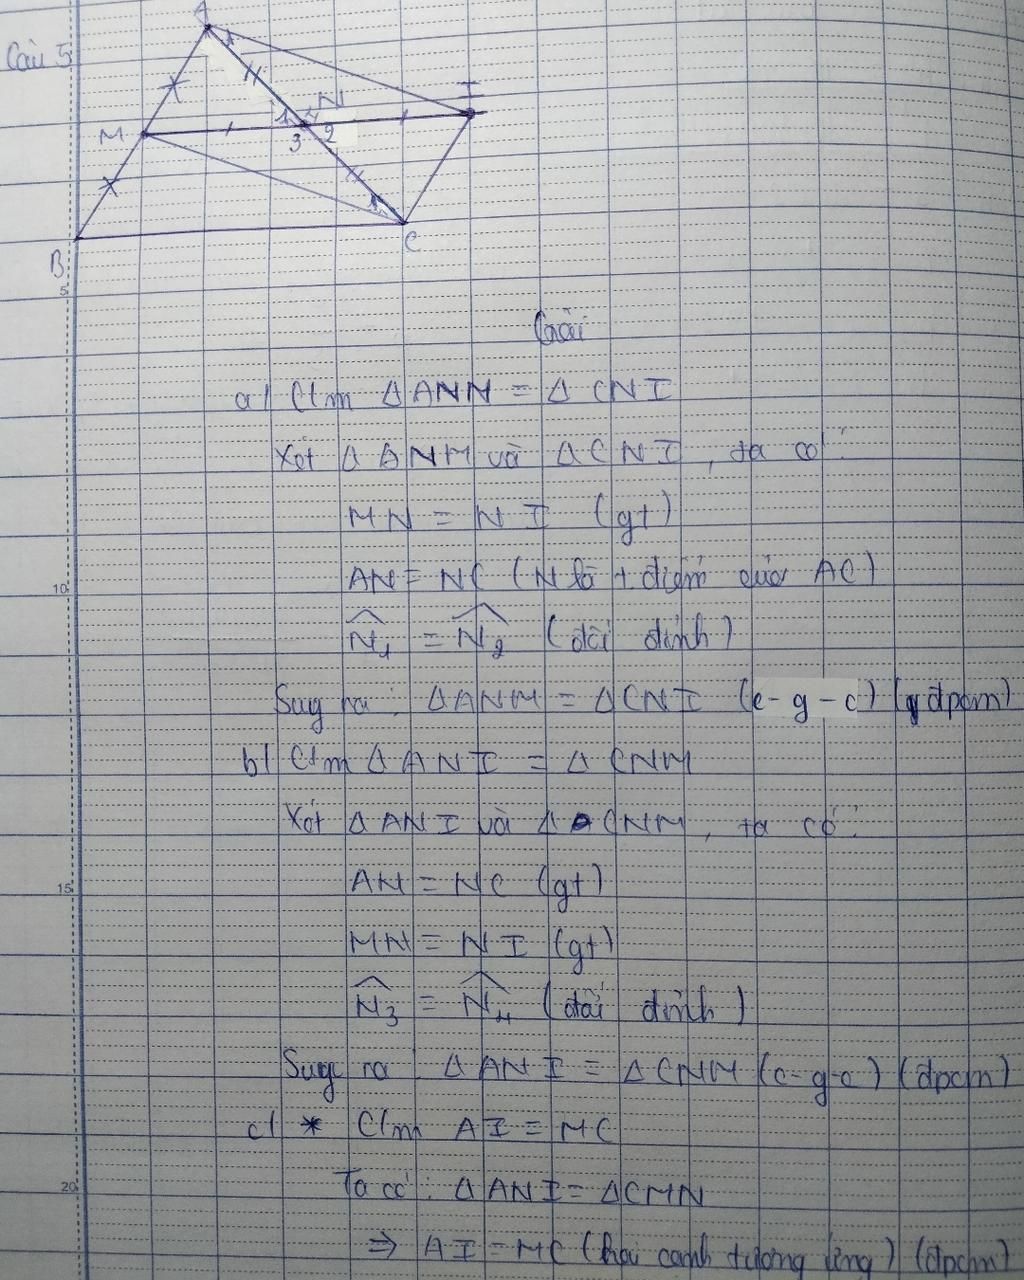 Câu 5
A
M
N
I
1
1
4
3
2
1
B
C
5
Giải
a) C/m ΔANN = ΔCNI
Xét ΔANM và ΔCNI, ta có:
MN = NI (gt)
AN = NC (N là t điểm của AC)
N̂₁ = N̂₂ (đối đỉnh)
10
Suy ra: ΔANM = ΔCNI (c-g-c) (đpcm)
b) C/m ΔANI = ΔCNM
Xét ΔANI và ΔCNM, ta có:
15
AN = NC (gt)
MN = NI (gt)
N̂₃ = N̂₄ (đối đỉnh)
Suy ra: ΔANI = ΔCNM (c-g-c) (đpcm)
c) * C/m AI = MC
20
Ta có: ΔANI = ΔCMN
⇒ AI = MC (hai cạnh tương ứng) (đpcm)